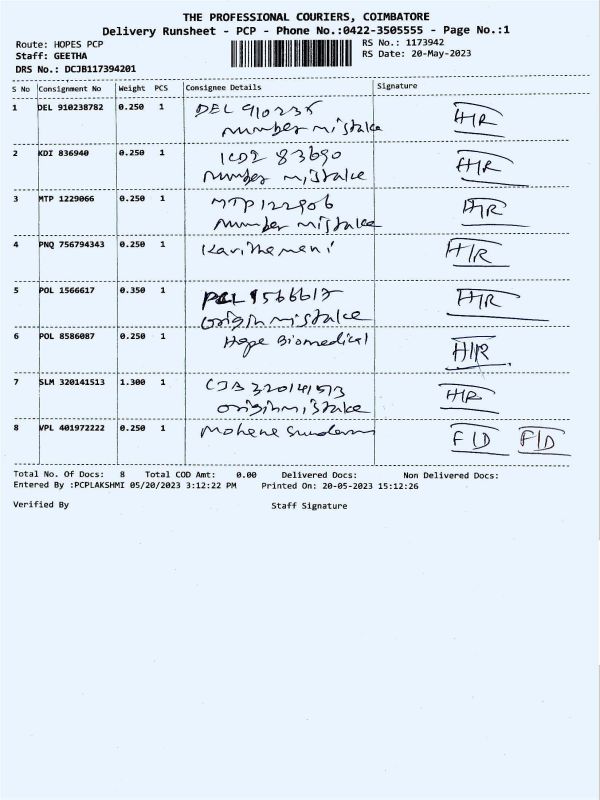 THE PROFESSIONAL COURIERS, COIMBATORE
Delivery Runsheet - PCP - Phone No.:0422-3505555 - Page No.:1
Route: HOPES PCP
Staff: GEETHA
DRS No.: DCJB117394201
RS No.: 1173942
RS Date: 20-May-2023
S No Consignment No Weight PCS Consignee Details Signature
1 DEL 910238782 0.250 1 DEL 910235 H/R
number mistake
2 KDI 836940 0.250 1 KDI 83690 H/R
number mistake
3 MTP 1229066 0.250 1 MTP 122906 H/R
number mistake
4 PNQ 756794343 0.250 1 Karithemeni H/R
5 POL 1566617 0.350 1 PCL 1566617 H/R
origin mistake
6 POL 8586087 0.250 1 Hope Biomedical H/R
7 SLM 320141513 1.300 1 CJB 320141513 H/R
origin mistake
8 VPL 401972222 0.250 1 Mohene Sundaram F/D F/D
Total No. Of Docs: 8 Total COD Amt: 0.00 Delivered Docs: Non Delivered Docs:
Entered By :PCPLAKSHMI 05/20/2023 3:12:22 PM Printed On: 20-05-2023 15:12:26
Verified By Staff Signature